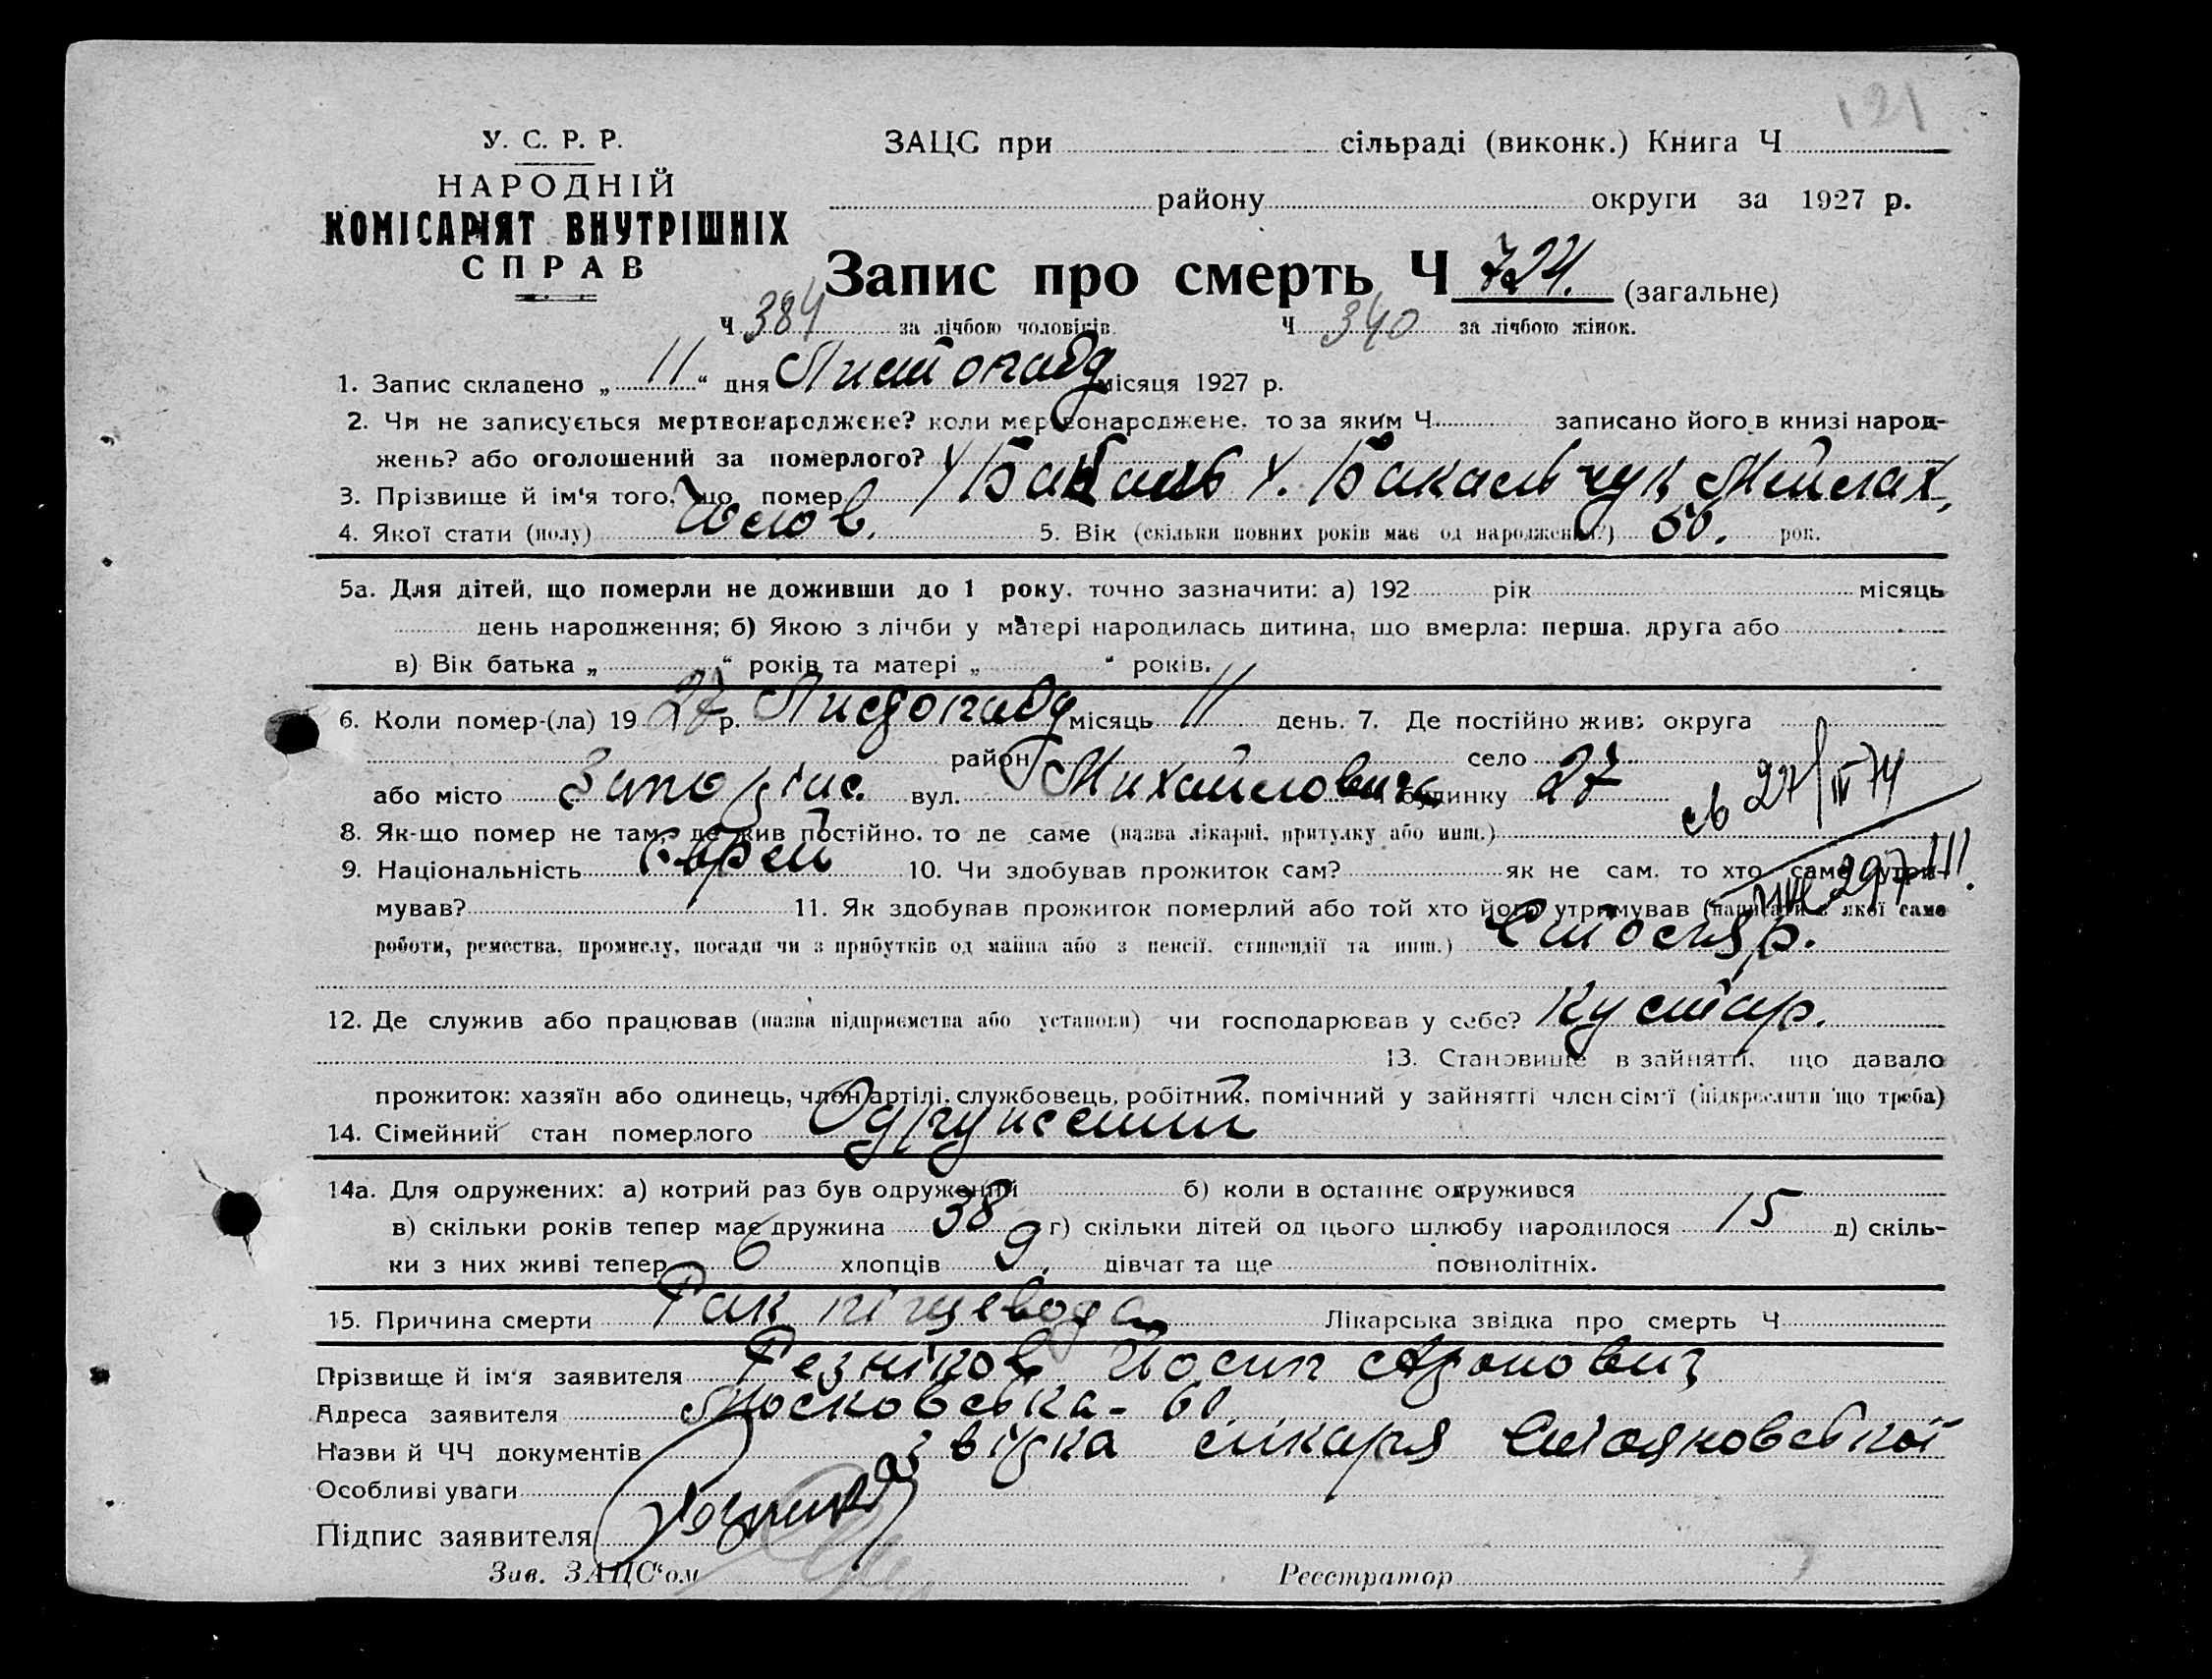 121
У. С. Р. Р.
НАРОДНІЙ
КОМІСАРІЯТ ВНУТРІШНІХ
СПРАВ
ЗАЦС при сільраді (виконк.) Книга Ч
району округи за 1927 р.
Запис про смерть Ч 724. (загальне)
Ч 384 за лічбою чоловіків Ч 340 за лічбою жінок.
1. Запис складено „ 11 “ дня Листопада місяця 1927 р.
2. Чи не записується мертвонароджене? коли мертвонароджене, то за яким Ч записано його в книзі народ-
жень? або оголошений за померлого?
3. Прізвище й ім'я того, що помер Бакальчук Мейлах,
4. Якої стати (полу) чолов. 5. Вік (скільки повних років має од народження?) 50. рок.
5а. Для дітей, що померли не доживши до 1 року, точно зазначити: а) 192 рік місяць
день народження; б) Якою з лічби у матері народилась дитина, що вмерла: перша, друга або
в) Вік батька „ “ років та матері „ “ років.
6. Коли помер-(ла) 1927 р. Листопада місяць 11 день. 7. Де постійно жив: округа
район село
або місто Запоріж. вул. Михайловича Ч будинку 27
8. Як-що помер не там, де жив постійно, то де саме (назва лікарні, притулку або инш.)
9. Національність Єврей 10. Чи здобував прожиток сам? як не сам, то хто саме утри-
мував? 11. Як здобував прожиток померлий або той хто його утримував (написати з якої саме
роботи, ремества, промислу, посади чи з прибутків од майна або з пенсії, стипендії та инш.) Столяр.
12. Де служив або працював (назва підприємства або установи) чи господарював у себе? Кустар.
13. Становище в зайнятті, що давало
прожиток: хазяїн або одинець, член артілі, службовець, робітник, помічний у зайнятті член сім'ї (підкреслити що треба)
14. Сімейний стан померлого Одружений
14а. Для одружених: а) котрий раз був одружений б) коли в останнє одружився
в) скільки років тепер має дружина 38 г) скільки дітей од цього шлюбу народилося 15 д) скіль-
ки з них живі тепер 6 хлопців 9. дівчат та ще повнолітніх.
15. Причина смерти Рак піщевода Лікарська звідка про смерть Ч
Прізвище й ім'я заявителя Резніков Йосип Аронович
Адреса заявителя Московська - 60.
Назви й ЧЧ документів звідка лікаря Стояновської
Особливі уваги
Підпис заявителя
Зав. ЗАЦС'ом Реєстратор